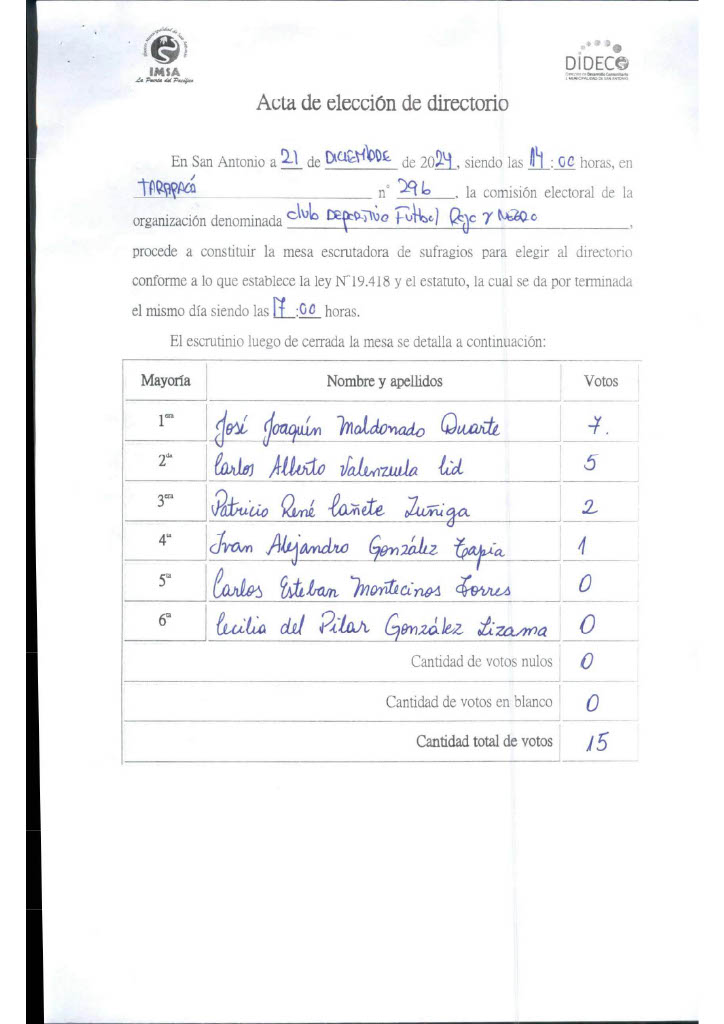 IMSA
La Puerta del Pacífico
DIDECO
Acta de elección de directorio
En San Antonio a 21 de DICIEMBRE de 2024, siendo las 14:00 horas, en
TARAPACÁ n° 296, la comisión electoral de la
organización denominada Club DEPORTIVO Futbol Rojo y NEGRO,
procede a constituir la mesa escrutadora de sufragios para elegir al directorio
conforme a lo que establece la ley N°19.418 y el estatuto, la cual se da por terminada
el mismo día siendo las 17:00 horas.
El escrutinio luego de cerrada la mesa se detalla a continuación:
Mayoría Nombre y apellidos Votos
1era José Joaquín Maldonado Duarte 7.
2da Carlos Alberto Valenzuela Cid 5
3era Patricio René Cañete Zuñiga 2
4ta Ivan Alejandro González Tapia 1
5ta Carlos Esteban Montecinos Torres 0
6ta Cecilia del Pilar González Lizama 0
Cantidad de votos nulos 0
Cantidad de votos en blanco 0
Cantidad total de votos 15